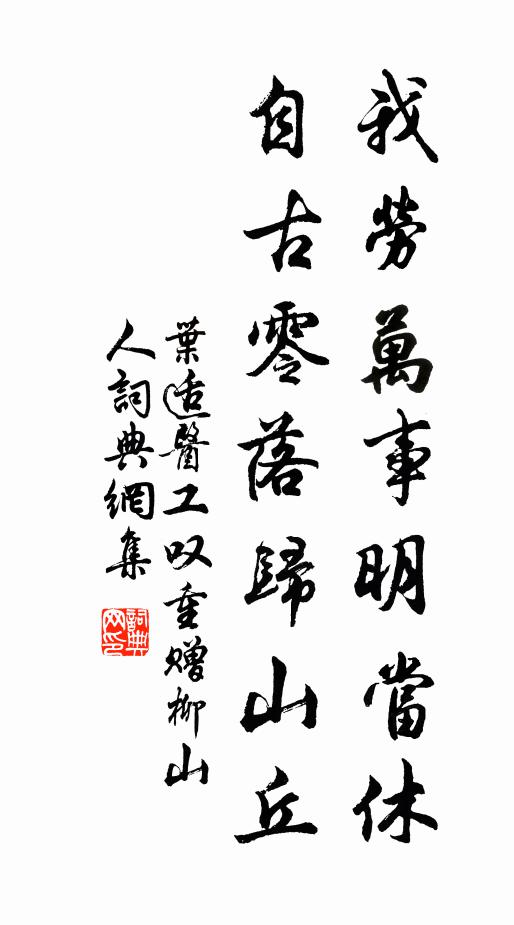 我勞萬事明當休
自古零落歸山丘
葉适醫工叹重赠柳山
人詞典網集
詞典